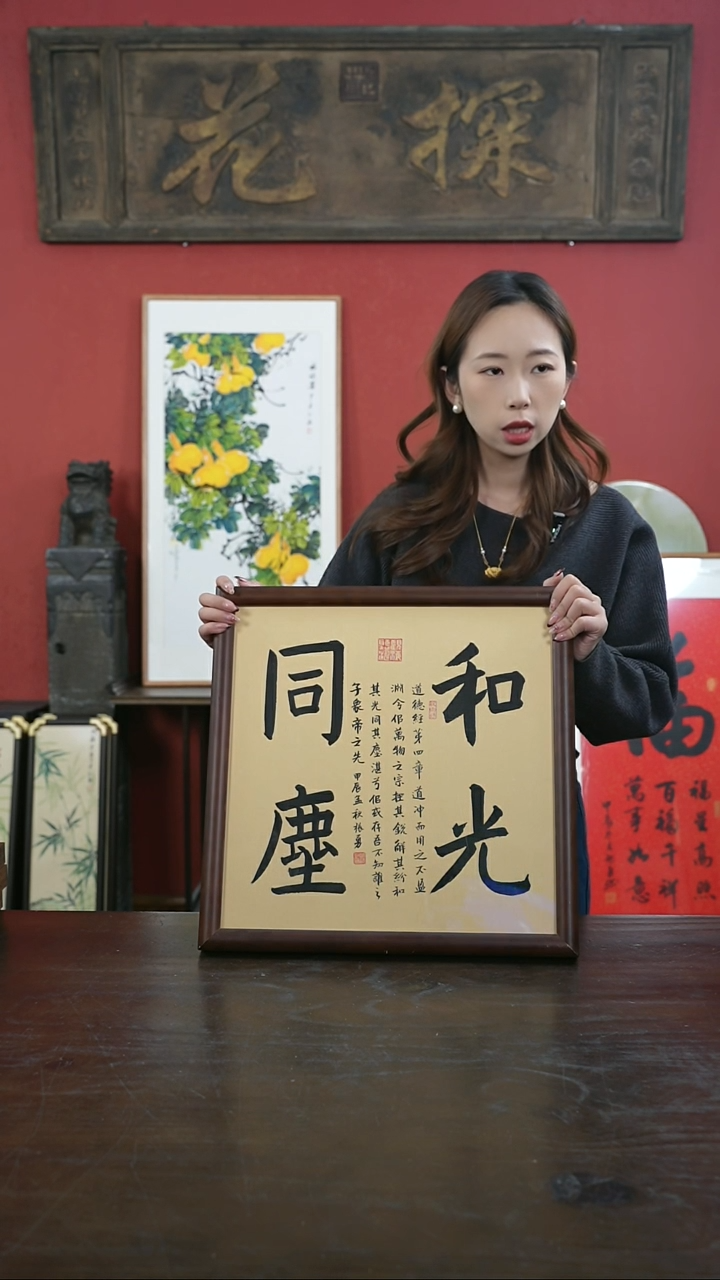 探花
和光
道德經第四章 道沖而用之不盈
淵兮佀萬物之宗挫其銳解其紛和
其光同其塵湛兮佀或存吾不知誰之
子象帝之先 甲辰孟秋張勇
同塵
福
福星高照
百福千祥
萬事如意